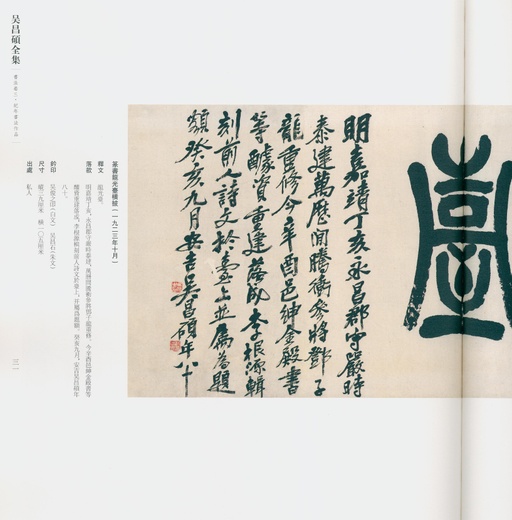 明嘉靖丁亥永昌郡守嚴時
泰建萬歷间騰衝參將鄧子
龍重修今辛酉邑紳金殿書
等醵資重建落成李根源輯
刻前人詩文於臺上並屬為題
額癸亥九月安吉吴昌碩年八十
篆書龍光臺橫披(一九二三年十月)
釋文 龍光臺。
落款 明嘉靖丁亥,永昌郡守嚴時泰建,萬曆間騰衝參將鄧子龍重修,今辛酉邑紳金殿書等
醵資重建落成,李根源輯刻前人詩文於臺上,并屬爲題額,癸亥九月,安吉吴昌碩年
八十。
鈐印 吴俊之印(白文) 吴昌石(朱文)
尺寸 縱三九厘米 橫一〇五厘米
出處 私人
吴昌碩全集 書法卷三·紀年書法作品